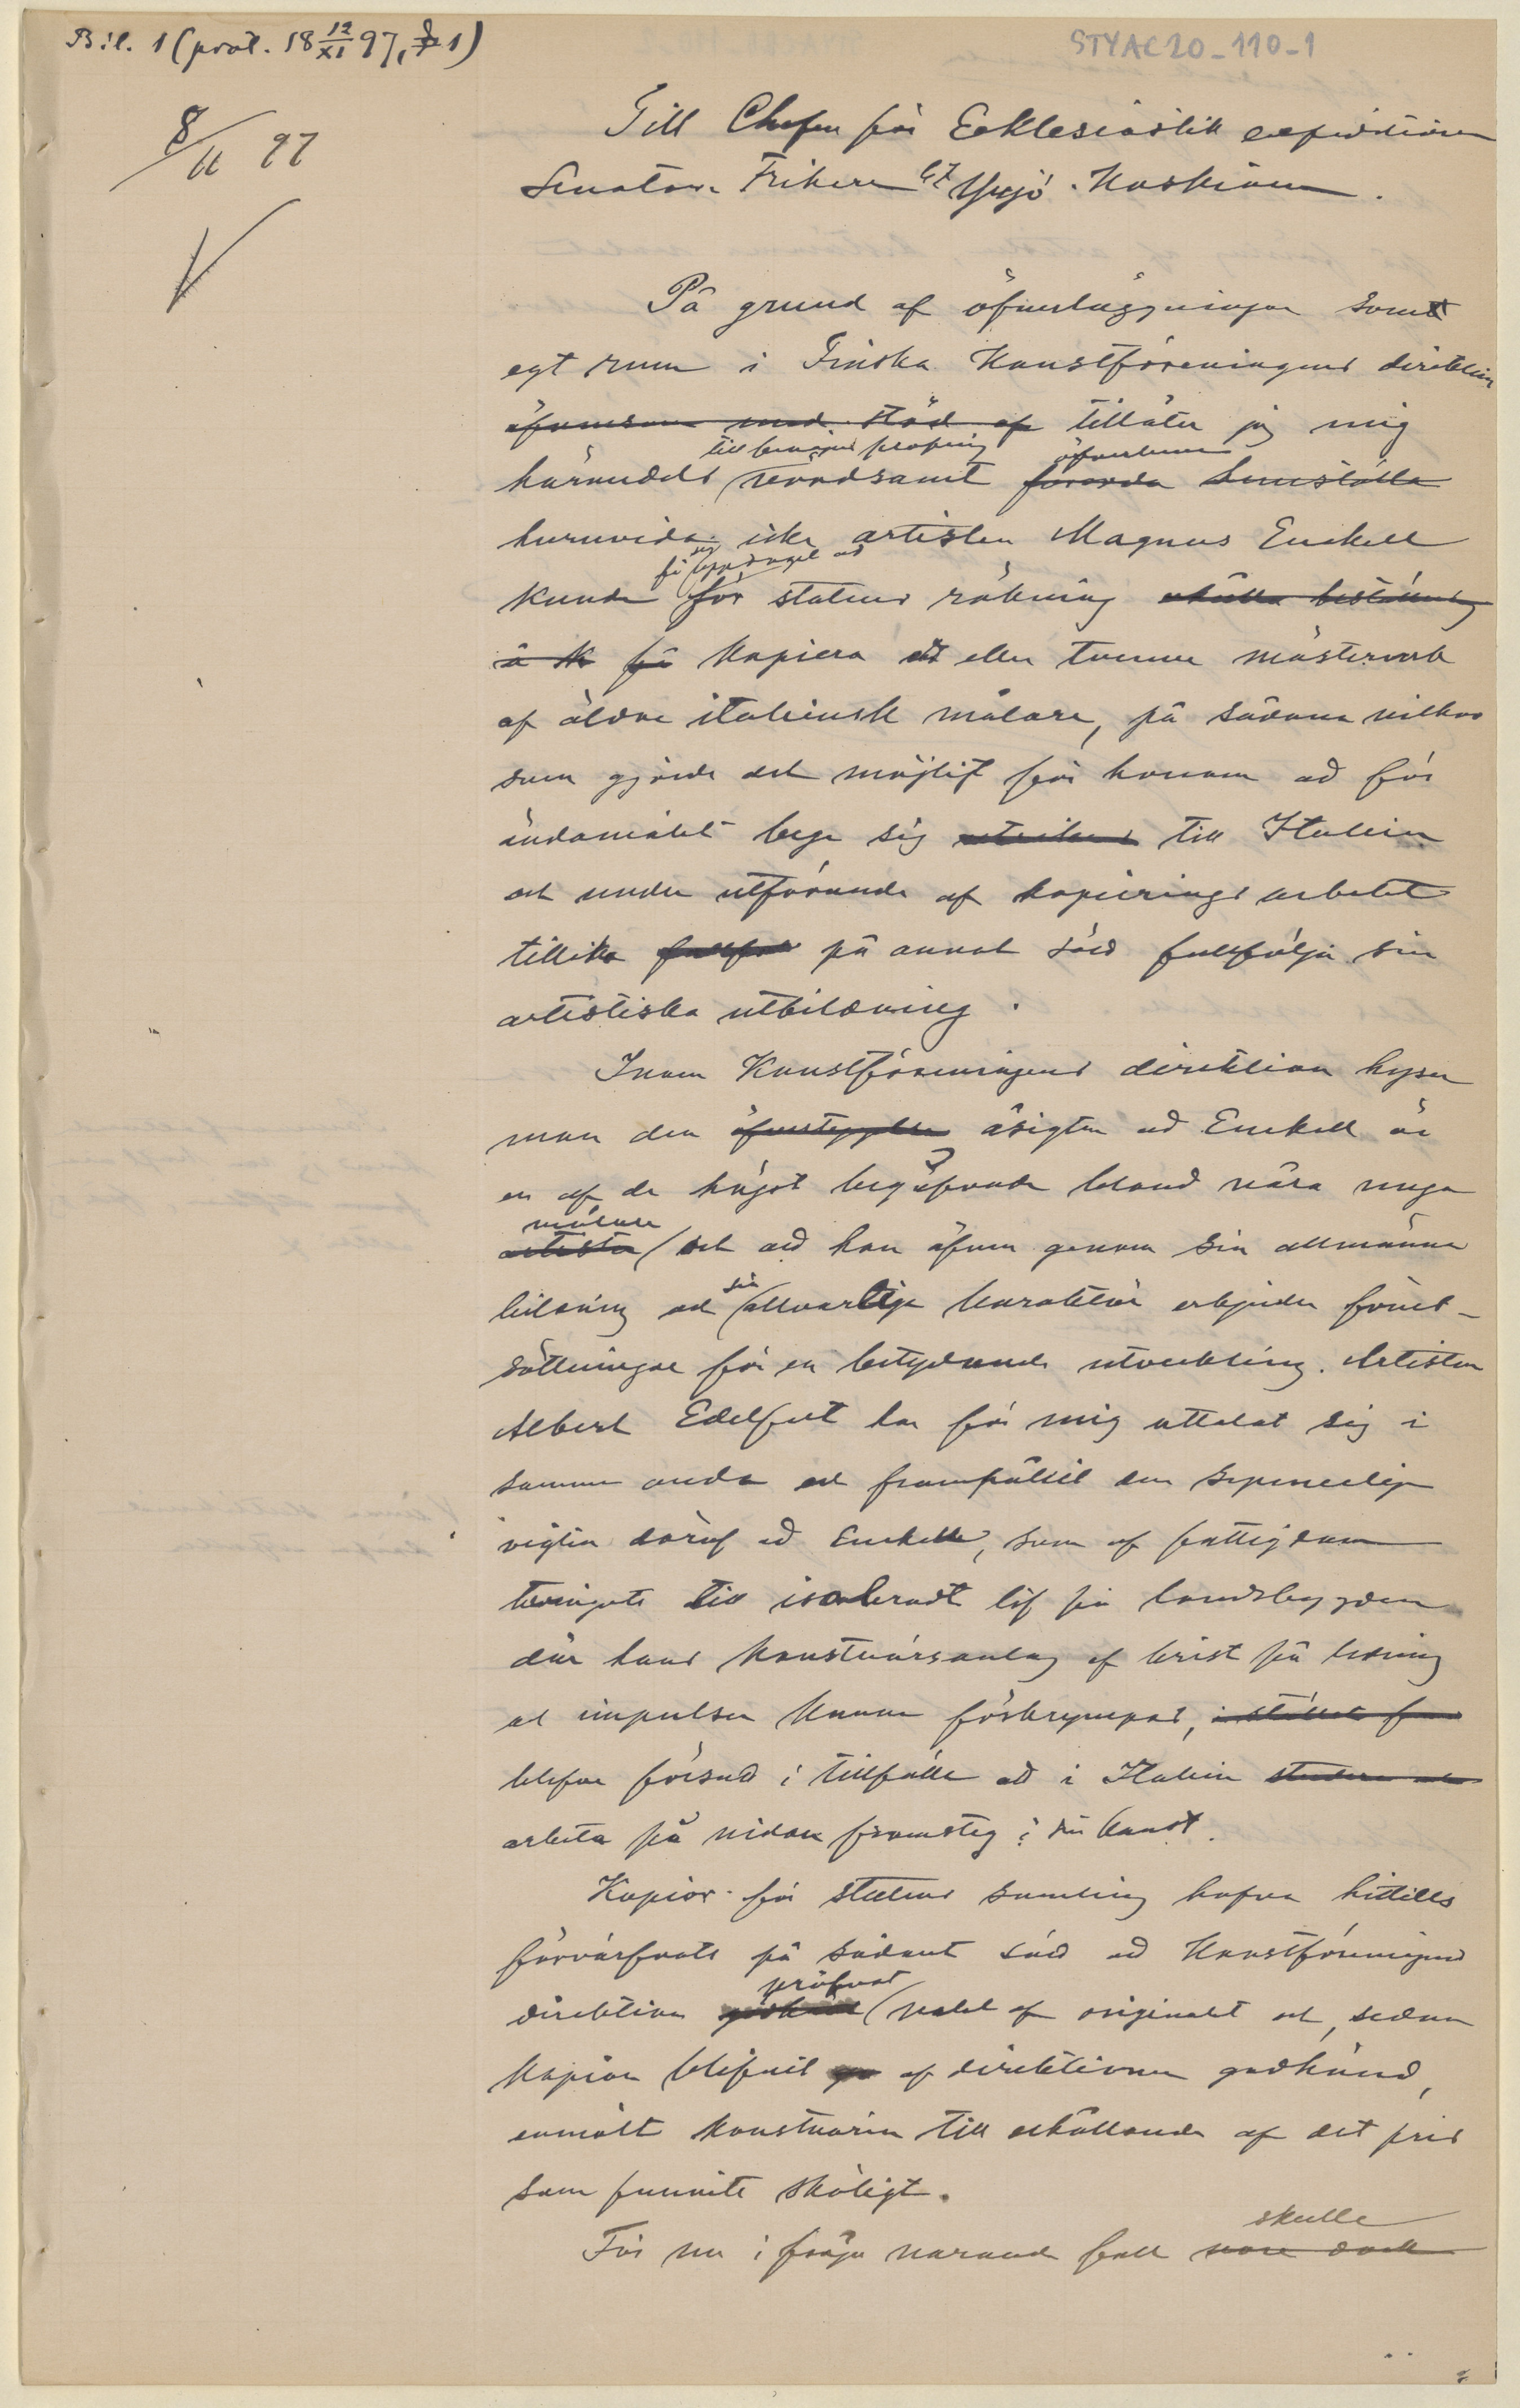 Bil. 1 (prot. 18 12/XI 97, § 1)
STYAC20_110_1
8/11 97
V
Till Chefen för Ecklesiastik expeditionen
Senatorn Friherre Yrjö-Koskinen.
På grund af öfverläggningar som
egt rum i Finska Konstföreningens direktion
äfvensom med stöd af tillåter jag mig
till benägen pröfning öfverlemna
härmedels vördsamt förorda hemställa
huruvida icke artisten Magnus Enckell
få sig uppdraget att
kunde för statens räkning erhålla beställning
få kopiera ett eller tvenne mästerverk
af äldre italiensk målare, på sådana vilkor
som gjorde det möjligt för honom att för
ändamålet bege sig till Italien
och under utförande af kopieringsarbetet
tillika på annat sätt fullfölja sin
artistiska utbildning.
Inom Konstföreningens direktion hyser
man den åsigten att Enckell är
en af de högst begåfvade bland våra unga
målare
artister och att han äfven genom sin allmänna
sin
bildning och allvarliga karaktär erbjuder förut-
sättningar för en betydande utveckling. Artisten
Albert Edelfelt har för mig uttalat sig i
samma anda och framhållit den synnerliga
vigten däraf att Enckell, som af fattigdom
tvingats till isoleradt lif på landsbygden
där hans konstnärsanlag af brist på ledning
och impulser kunna förkrympas, i stället för
blefve försatt i tillfälle att i Italien studera och
arbeta på vidare framsteg i sin konst.
Kopior för statens samling hafva hittills
förvärfvats på sådant sätt att Konstföreningens
pröfvat
direktion godkänt valet af originalet och, sedan
kopian blifvit af direktionen godkänd,
anmält konstnären till erhållande af det pris
som funnits skäligt.
skulle
För nu i fråga varande fall vore dock